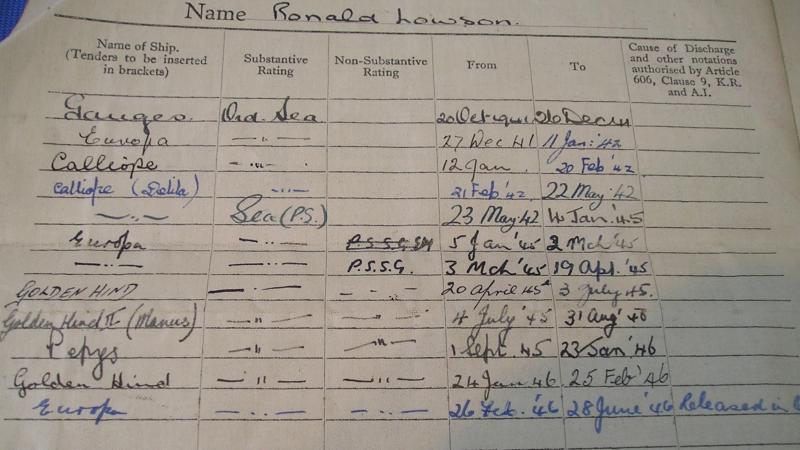 Name Ronald Lowson.
Name of Ship. (Tenders to be inserted in brackets) Substantive Rating Non-Substantive Rating From To Cause of Discharge and other notations authorised by Article 606, Clause 9, K.R. and A.I.
Ganges. Ord. Sea 20 Oct 1941 26 Dec 41
Europa —"— 27 Dec 41 11 Jan: 42
Calliope —"— 12 Jan. 20 Feb '42
Calliope (Delila) —"— 21 Feb '42. 22 May '42
—"— Sea (P.S.) 23 May 42 4 Jan '45
Europa —"— 5 Jan '45 2 Mch '45
—"— —"— P.S.S.G. 3 Mch '45 19 Apl. '45
GOLDEN HIND —"— —"— 20 April 45 3 July 45.
Golden Hind II (Manus) —"— —"— 4 July '45 31 Aug '45
Pepys —"— —"— 1 Sept. 45 23 Jan '46
Golden Hind —"— —"— 24 Jan 46 25 Feb '46
Europa —"— —"— 26 Feb. '46 28 June '46 Released in